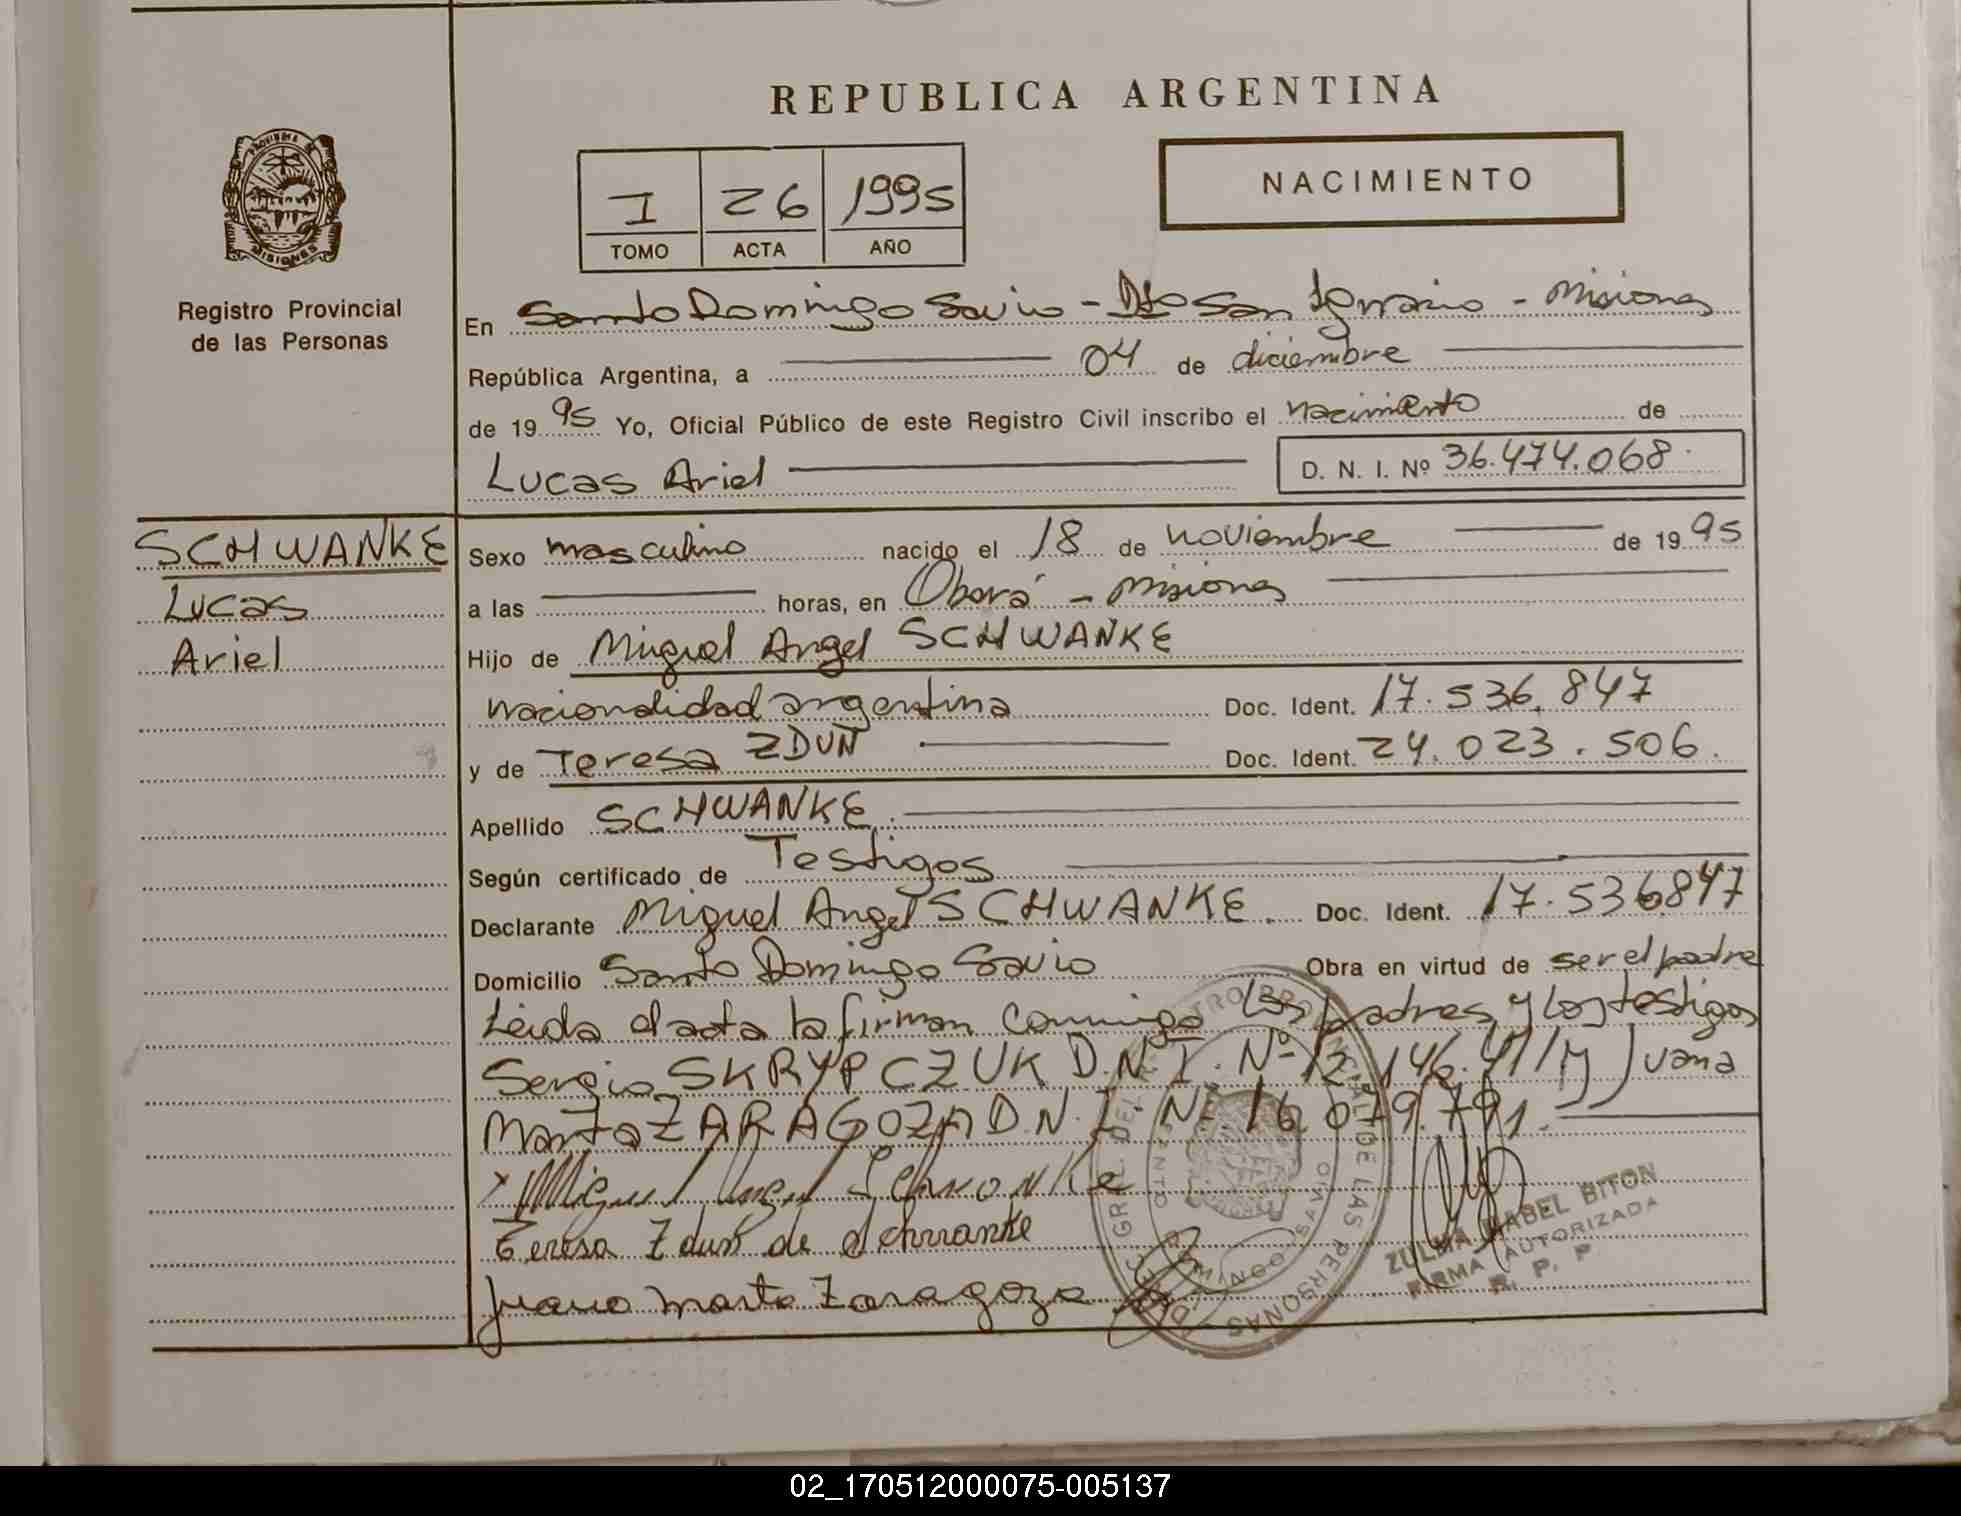 REPUBLICA ARGENTINA
I 26 1995
TOMO ACTA AÑO
NACIMIENTO
PROVINCIA DE MISIONES
Registro Provincial
de las Personas
En Santo Domingo Savio - Dto San Ignacio - Misiones
República Argentina, a 04 de diciembre
de 1995 Yo, Oficial Público de este Registro Civil inscribo el nacimiento de
Lucas Ariel D. N. I. Nº 36.474.068
SCHWANKE
Lucas
Ariel
Sexo masculino nacido el 18 de noviembre de 1995
a las horas, en Oberá - Misiones
Hijo de Miguel Angel SCHWANKE
nacionalidad argentina Doc. Ident. 17.536.847
y de Teresa ZDUN Doc. Ident. 24.023.506.
Apellido SCHWANKE.
Según certificado de Testigos
Declarante Miguel Angel SCHWANKE. Doc. Ident. 17.536847
Domicilio Santo Domingo Savio Obra en virtud de ser el padre
Leida el acta la firman conmigo los padres y los testigos
Sergio SKRYPCZUK D.N.I. Nº 12.146. Juana
Marta ZARAGOZA D.N.I. Nº 16.079.791.
Miguel Angel Schwanke
Teresa Zdun de Schwanke
Juana Marta Zaragoza
ZULMA MABEL BITON
FIRMA AUTORIZADA
R. P. P.
02_170512000075-005137